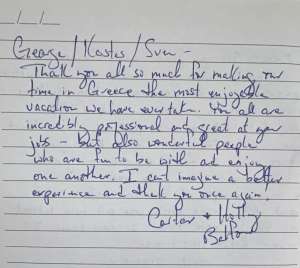 George/Kostas/Sven -
Thank you all so much for making our
time in Greece the most enjoyable
vacation we have ever taken. You all are
incredibly professional and great at your
jobs - but also wonderful people
who are fun to be with and enjoy
one another. I can't imagine a better
experience and thank you once again.
Carter + Holly